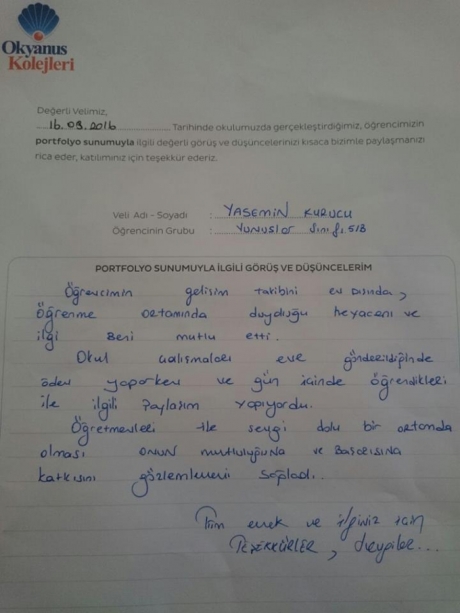 Okyanus
Kolejleri
Değerli Velimiz,
16.03.2016 Tarihinde okulumuzda gerçekleştirdiğimiz, öğrencimizin
portfolyo sunumuyla ilgili değerli görüş ve düşüncelerinizi kısaca bizimle paylaşmanızı
rica eder, katılımınız için teşekkür ederiz.
Veli Adı - Soyadı : YASEMİN KURUCU
Öğrencinin Grubu : YUNUSlar Sınıfı 5/B
PORTFOLYO SUNUMUYLA İLGİLİ GÖRÜŞ VE DÜŞÜNCELERİM
Öğrencimin gelişim takibini ev dışında,
öğrenme ortamında duyduğu heyecanı ve
ilgi beni mutlu etti.
Okul çalışmaları eve gönderildiğinde
ödev yaparken ve gün içinde öğrendikleri
ile ilgili paylaşım yapıyordu.
Öğretmenleri ile sevgi dolu bir ortamda
olması onun mutluluğuna ve Başarısına
katkısını gözlemlememi sağladı..
Tüm emek ve ilginiz için
TEŞEKKÜRLER,